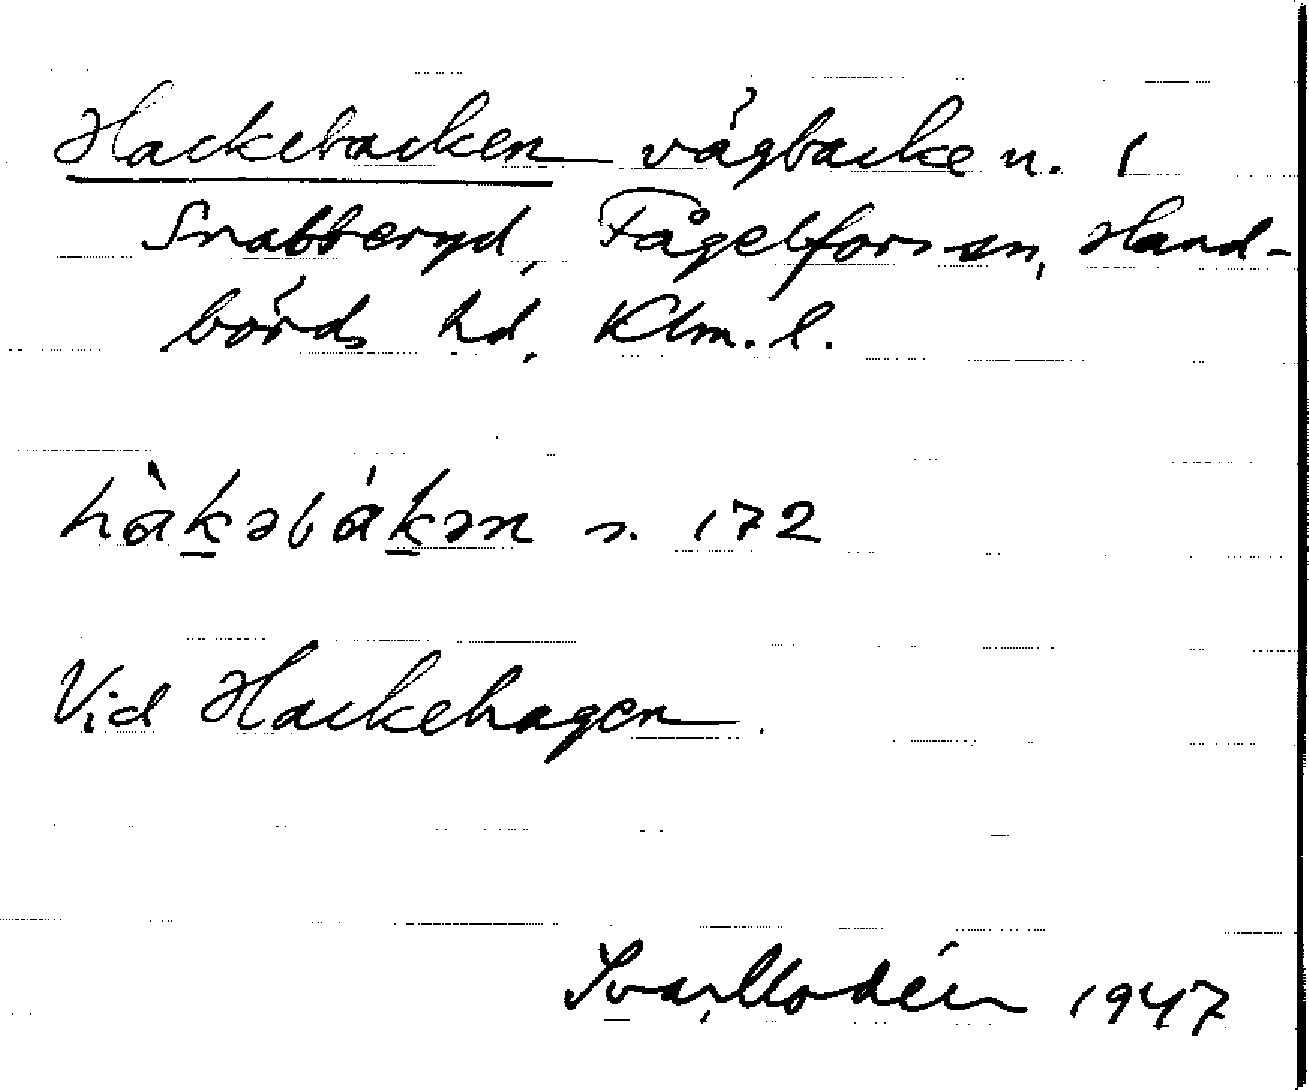 Hackebacken vägbacke n. 1
Snabberyd, Fågelfors sn, Hand-
börds hd, Klm. l.
hàkəbákən s. 172
Vid Hackehagen.
Ivar Modéer 1947